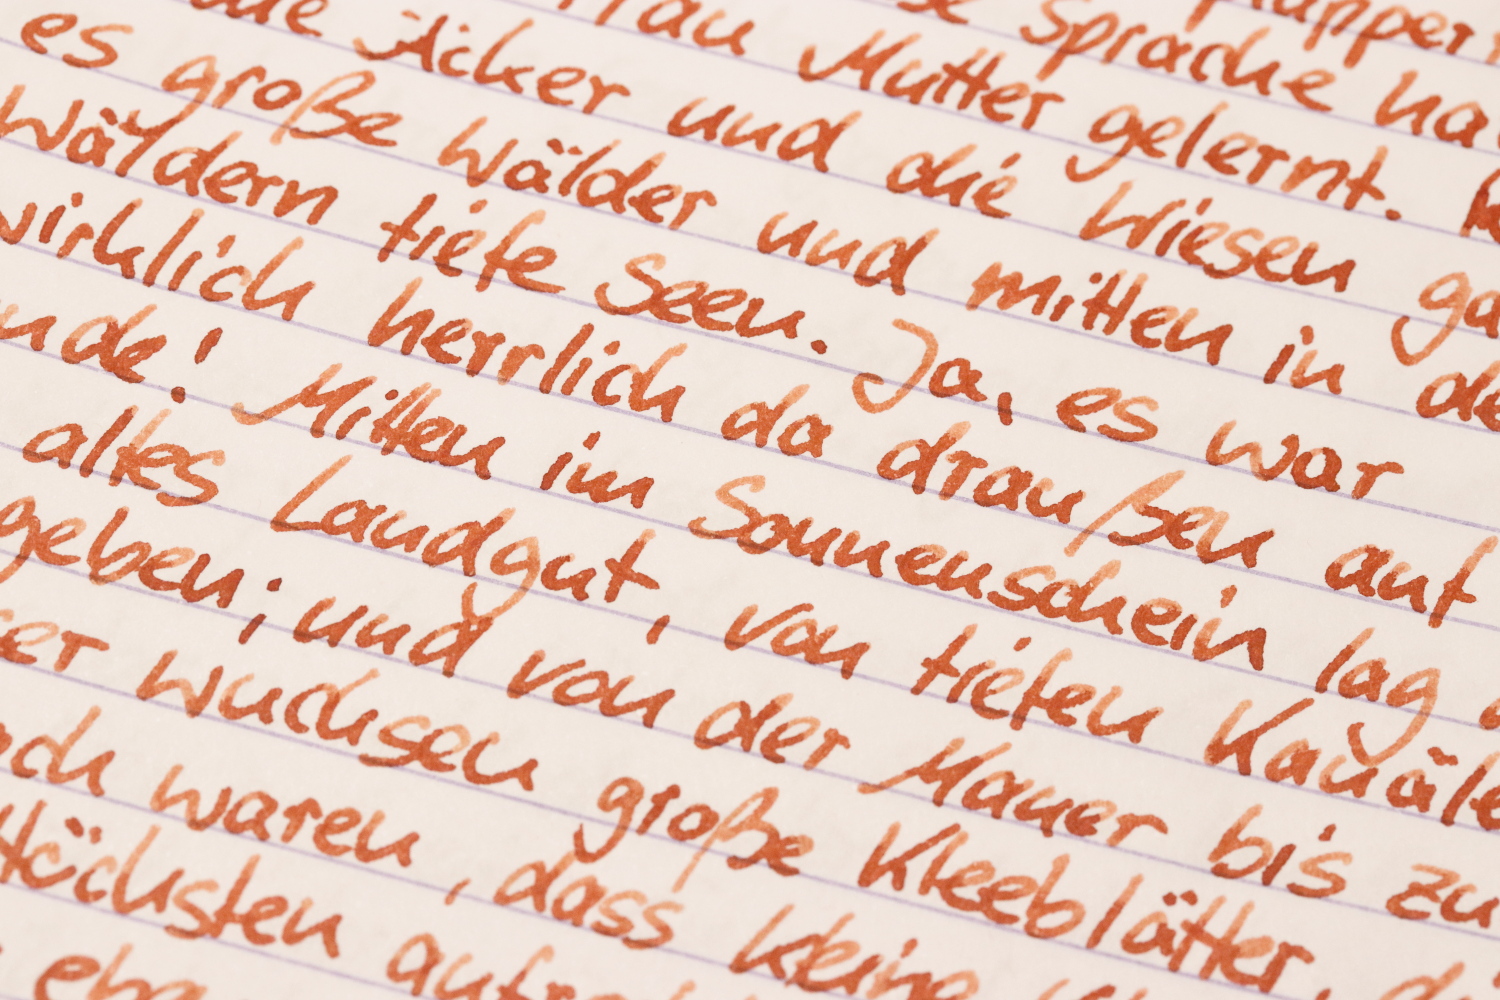 Sprache ha
Frau Mutter gelernt.
die Äcker und die Wiesen ga
es große Wälder und mitten in de
Wäldern tiefe Seen. Ja, es war
wirklich herrlich da draußen auf
nde! Mitten im Sonnenschein lag
altes Landgut, von tiefen Kanäle
geben; und von der Mauer bis zu
er wuchsen große Kleeblätter, d
och waren, dass kleine
Höchsten aufr
ebe